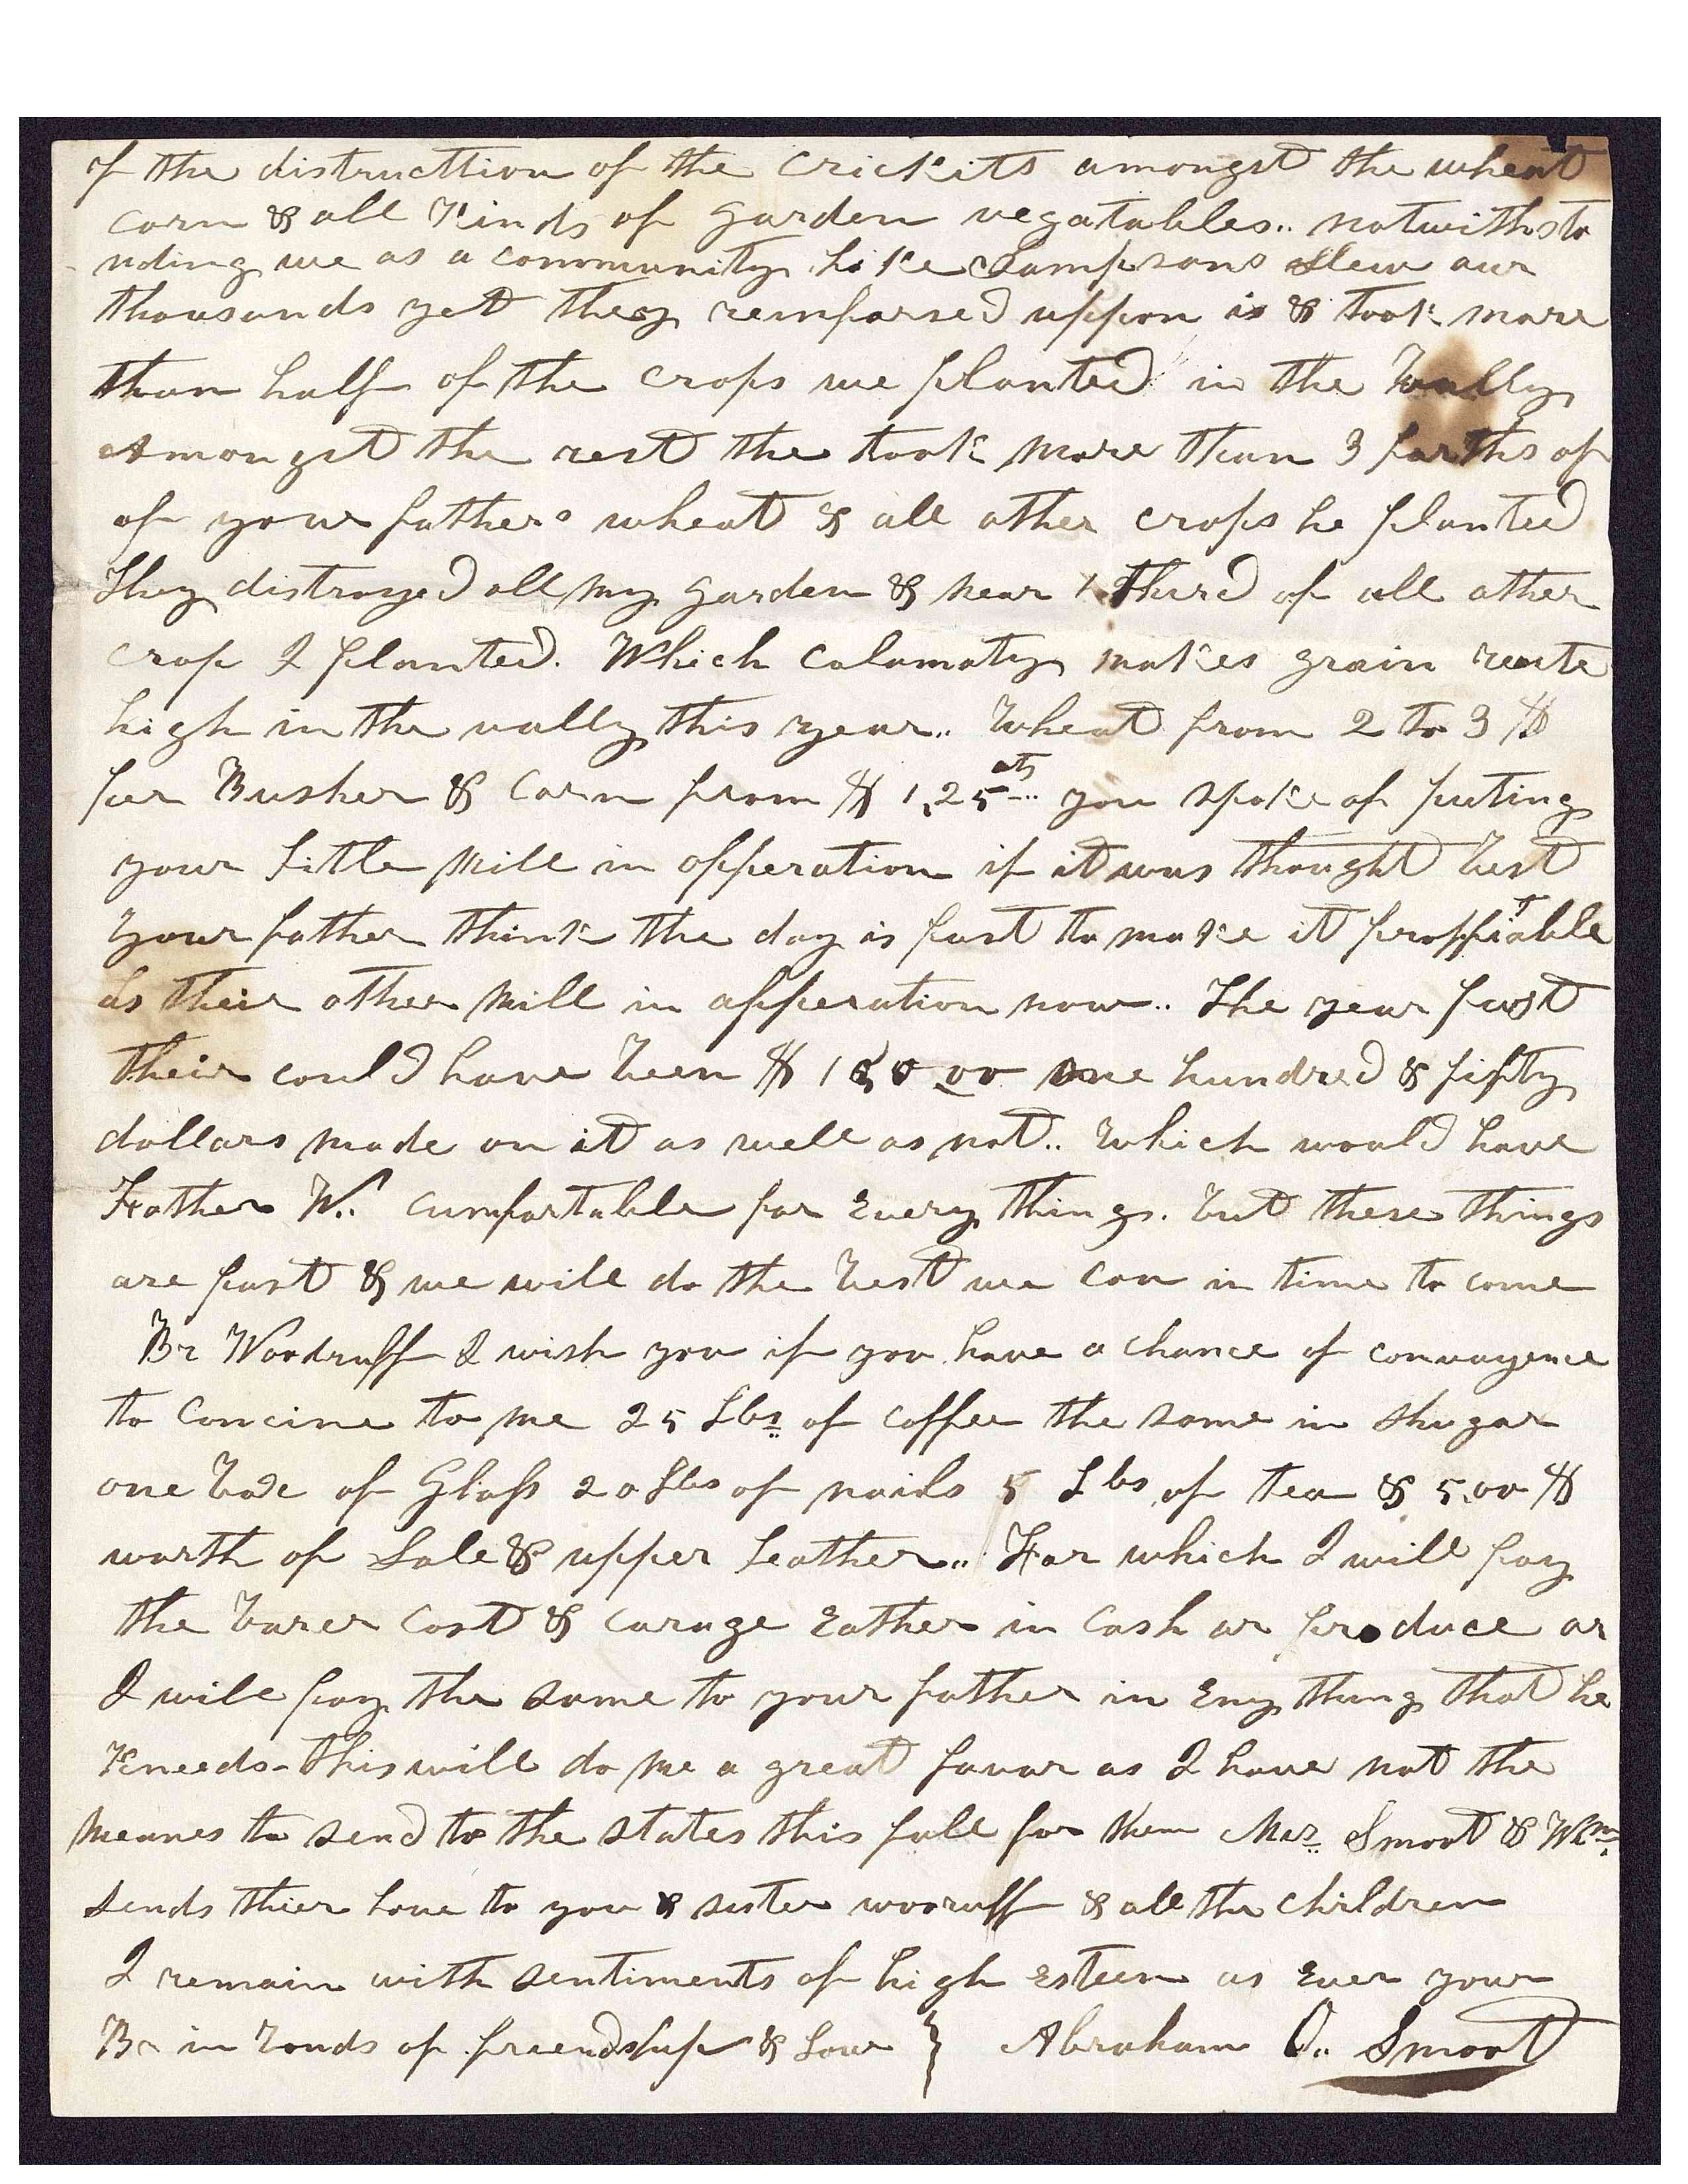 of the distructtion of the crickits amongst the wheat
corn & all kinds of garden vegatables.. notwithsta
nding we as a community like Sampsons slew our
thousands yet they reinforsed uppon is & took more
than half of the crops we planted in the vally
Amongst the rest the took more than 3 forths of
of your fathers wheat & all other crops he planted
They distroyed all my garden & near 1 third of all other
crop I planted. Which calamaty makes grain rente
high in the vally this year.. Wheat from 2 to 3 $
per Busher & Corn from $ 1,25 cts.. you spoke of puting
your little mill in opperation if it was thought best
your father think the day is past to make it proffitable
as their other mill in opperation now.. The year past
their could have been $ 150,00 one hundred & fifty
dollars made on it as well as not.. Which would have
Father W.. cumfortable for Every things. but these things
are past & we will do the best we can in time to come
Br Woodruff I wish you if you have a chance of convayence
to Concine to me 25 Lbs of coffee the same in shugar
one box of Glass 20 Lbs of nails 5 Lbs of tea & 5,00 $
worth of Sole & upper Leather.. For which I will pay
the barer Cost & carage Eather in Cash or produce or
I will pay the same to your father in Eny thing that he
Kneeds - this will do me a great favor as I have not the
meanes to send to the states this fall for them Mrs. Smoot & Wm.
sends thier love to you & sister wooruff & all the children
I remain with sentiments of high Esteem as Ever your
Br in bonds of friendship & Love } Abraham O.. Smoot